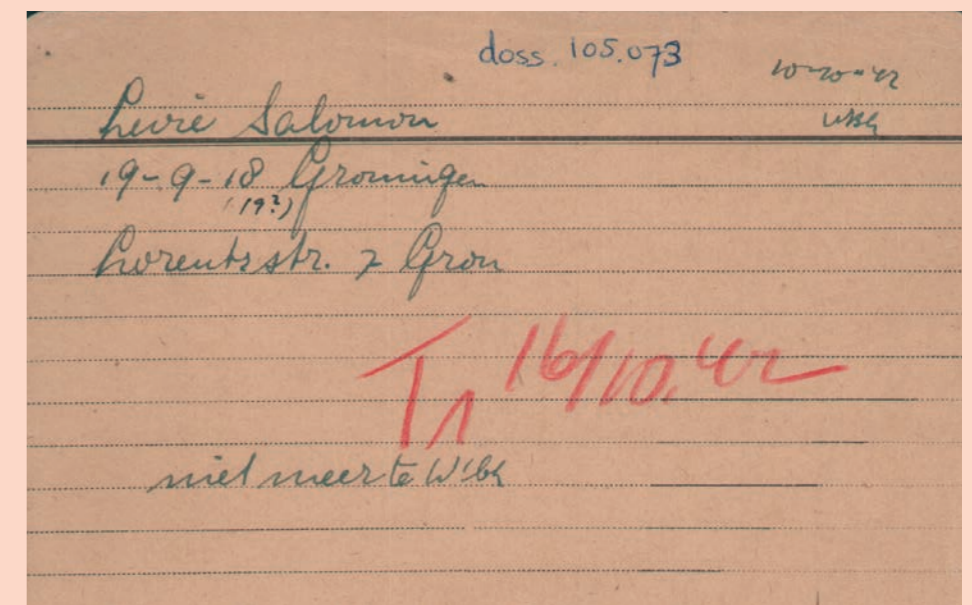 doss. 105.073
10-10-42
Levie Salomon
wbk
19-9-18 Groningen
(19?)
Lorentzstr. 7 Gron
Tr 16/10.'42
niet meer te W'bk